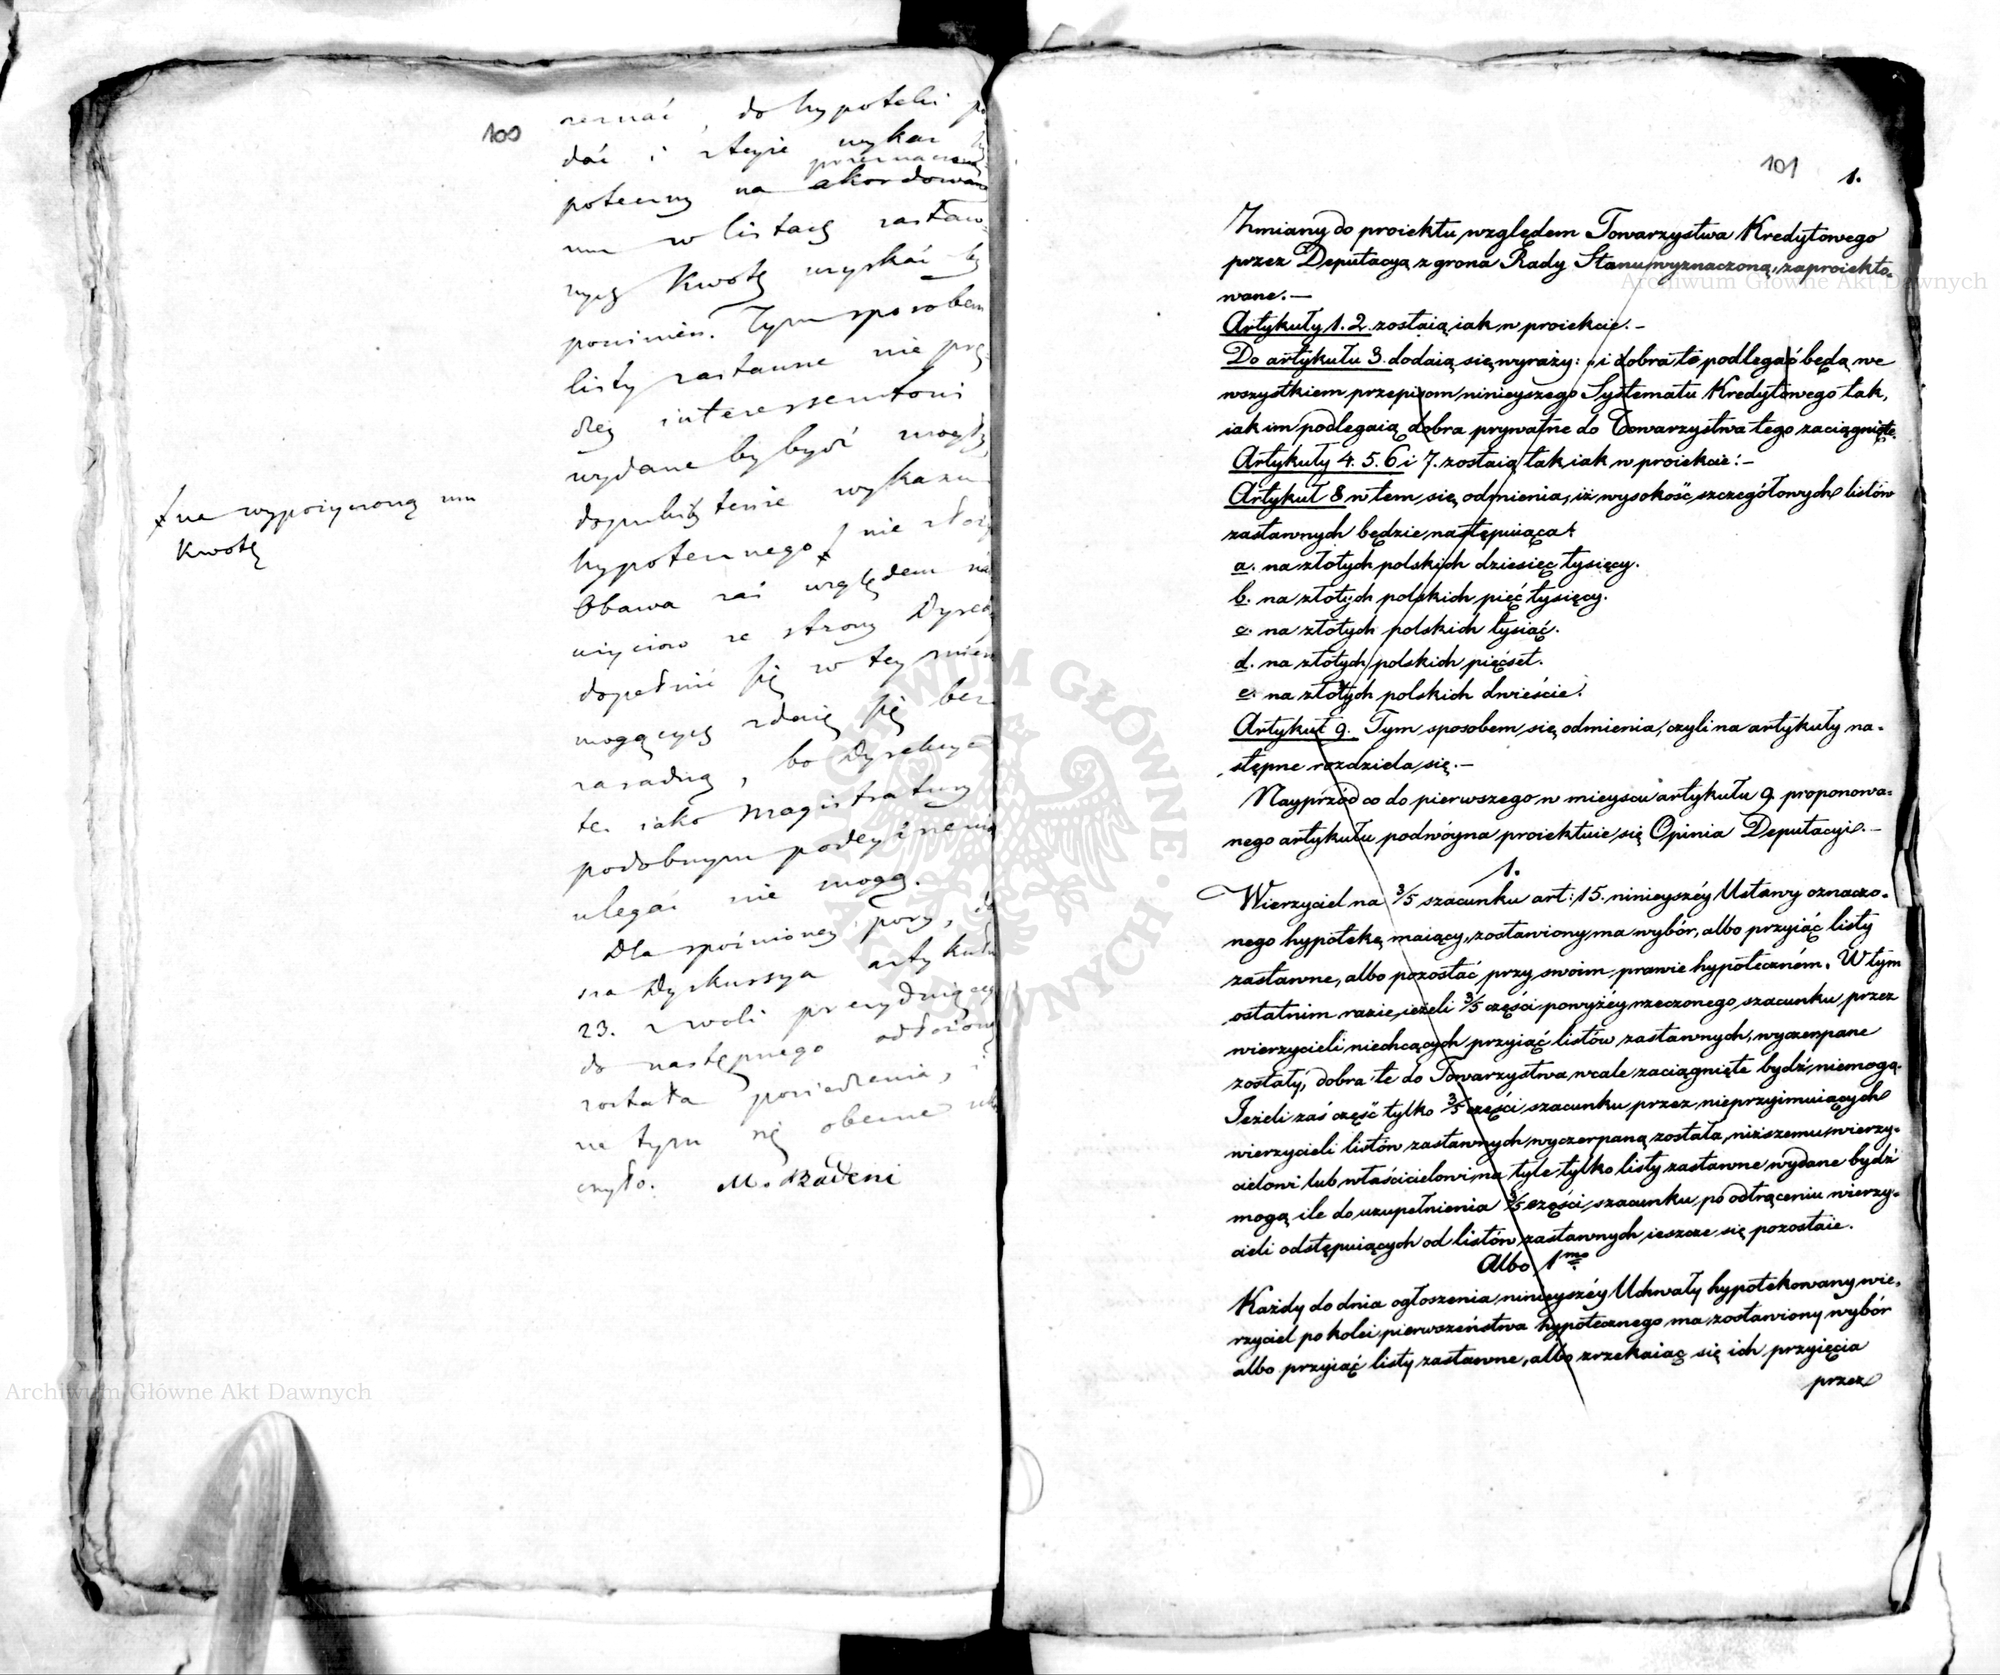 100
zeznać, do hypoteki po
dać i stąie wykaz hy
poteczny na przeznaczoną
akordowaną
mu w listach zastaw
nych Kwotę uzyskać by
powinien. Tym sposobem
listy zastawne nie prę
dzey interessentowi
wydane by bydź mogły,
dopuki tenże wykazu
hypotecznego ɟ nie złoży
Obawa zaś względem na
użyciów ze strony Dyrek
dopełnić się w tey mierze
mogących zdaie się bez
zasadną, bo Dyrekcye
te iako Magistratury
podobnym podeyźrzeniom
ulegać nie mogą.
Dla spóźnioney pory, dal
sza Dyskussya artykułu
23. z woli prezyduiącego
do następnego odłożoną
została posiedzenia, i
na tym się obecne ukoń
czyło. M. Badeni
ɟ na wypożyczoną mu
Kwotę
101
1.
Zmiany do proiektu względem Towarzystwa Kredytowego
przez Deputacyą z grona Rady Stanu wyznaczoną, zaproiekto-
wane.—
Artykuły 1. 2. zostaią iak w proiekcie.—
Do artykułu 3. dodaią się wyrazy: „i dobra te podlegać będą we
wszystkiem przepisom ninieyszego Systematu Kredytowego tak,
iak im podlegaią dobra prywatne do Towarzystwa tego zaciągnięte.
Artykuły 4. 5. 6 i 7. zostaią tak iak w proiekcie:—
Artykuł 8 w tem się odmienia, iż wysokość szczegółowych listów
zastawnych będzie następuiąca:
a. na złotych polskich dziesięć tysięcy.
b. na złotych polskich pięć tysięcy.
c. na złotych polskich tysiąć.
d. na złotych polskich pięćset.
e. na złotych polskich dwieście.
Artykuł 9. Tym sposobem się odmienia, czyli na artykuły na-
stępne rozdziela się.—
Nayprzód co do pierwszego w mieyscu artykułu 9. proponowa-
nego artykułu podwóyna proiektuie się Opinia Deputacyi.—
1.
Wierzyciel na 3/5 szacunku art: 15. ninieyszéy Ustawy oznaczo-
nego hypotekę maiący, zostawiony ma wybór, albo przyiąć listy
zastawne, albo pozostać przy swoim prawie hypoteczném. W tym
ostatnim razie, ieżeli 3/5 części powyżéy rzeczonego szacunku przez
wierzycieli niechcących przyiąć listów zastawnych, wyczerpane
zostały, dobra te do Towarzystwa wcale zaciągnięte bydź niemogą.
Jeżeli zaś część tylko 3/5 części szacunku przez nieprzyimuiących
wierzycieli listów zastawnych wyczerpaną została, niższemu wierzy-
cielowi lub właścicielowi na tyle tylko listy zastawne wydane bydź
mogą ile do uzupełnienia 3/5 części szacunku, po odtrąceniu wierzy-
cieli odstępuiących od listów zastawnych ieszcze się pozostaie.
Albo 1mo
Każdy do dnia ogłoszenia ninieyszéy Uchwały hypotekowany wie-
rzyciel po kolei pierwszeństwa hypotecznego ma zostawiony wybór
albo przyiąć listy zastawne, albo zrzekaiąc się ich przyięcia
przez
Archiwum Główne Akt Dawnych
Archiwum Główne Akt Dawnych
ARCHIWUM GŁÓWNE AKT DAWNYCH